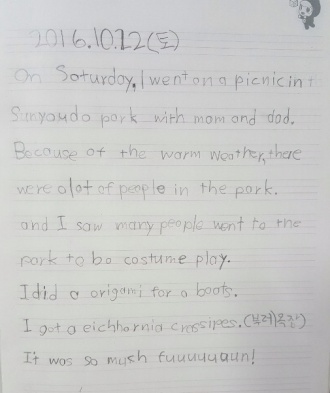 2016.10.22(토)
On Saturday, I went on a picnic in
Sunyoudo park with mom and dad.
Because of the warm weather, there
were alot of people in the park.
and I saw many people went to the
park to be costume play.
I did a origami for a boats.
I got a eichhornia crassipes.(부레옥잠)
It was so mush fuuuuuaun!